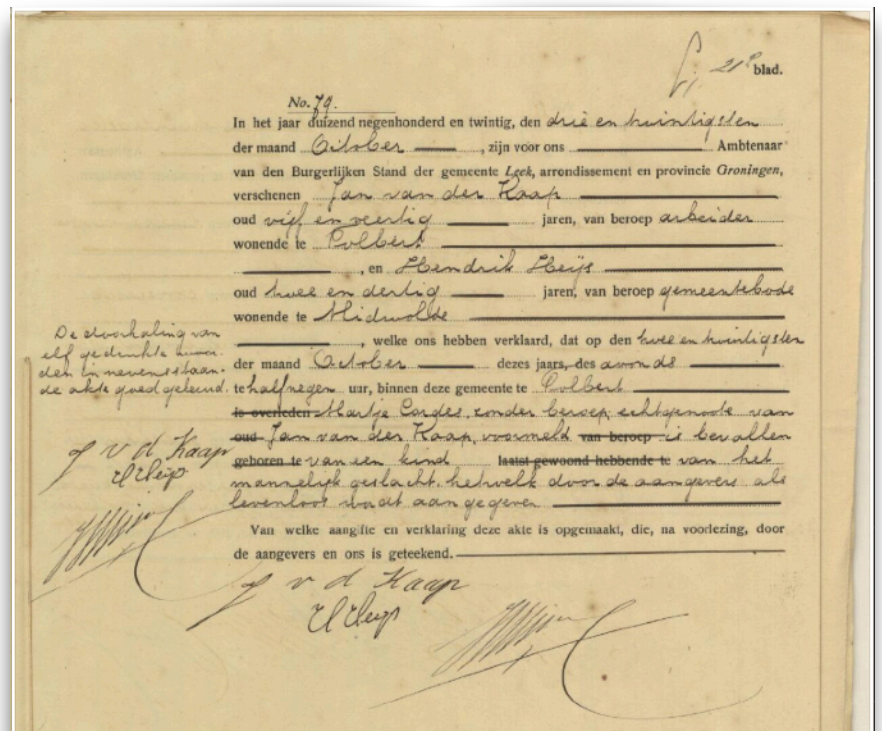 21e blad.
No. 79.
In het jaar duizend negenhonderd en twintig, den drie en twintigsten
der maand October, zijn voor ons Ambtenaar
van den Burgerlijken Stand der gemeente Leek, arrondissement en provincie Groningen,
verschenen Jan van der Kaap
oud vijf en veertig jaren, van beroep arbeider
wonende te Tolbert
, en Hendrik Heijs
oud twee en dertig jaren, van beroep gemeentebode
wonende te Midwolde
, welke ons hebben verklaard, dat op den twee en twintigsten
der maand October dezes jaars, des avonds
te half negen uur, binnen deze gemeente te Tolbert
is overleden Martje Cordes, zonder beroep, echtgenoote van
oud Jan van der Kaap, voormeld van beroep is bevallen
geboren te van een kind laatst gewoond hebbende te van het
mannelijk geslacht, hetwelk door de aangevers als
levenloos wordt aangegeven
Van welke aangifte en verklaring deze akte is opgemaakt, die, na voorlezing, door
de aangevers en ons is geteekend.
De doorhaling van
elf gedrukte woor-
den in nevenstaan-
de akte goedgekeurd.
J v d Kaap
H Heijs
J v d Kaap
H Heijs